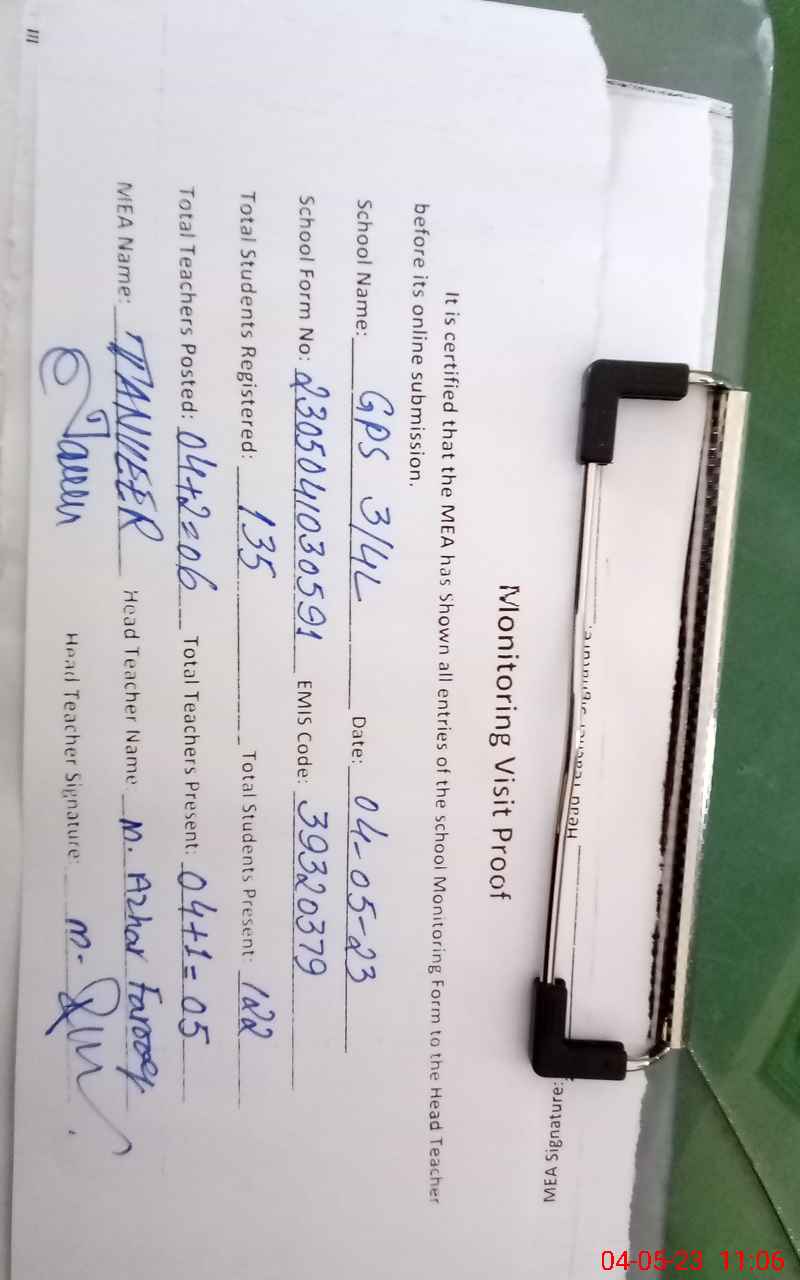 Head Teacher Signature:
MEA Signature:
Monitoring Visit Proof
It is certified that the MEA has Shown all entries of the school Monitoring Form to the Head Teacher
before its online submission.
School Name: GPS 3/4L Date: 04-05-23
School Form No: 2305041030591 EMIS Code: 39320379
Total Students Registered: 135 Total Students Present: 122
Total Teachers Posted: 04+2=06 Total Teachers Present: 04+1=05
MEA Name: TANVEER Head Teacher Name M. Azhar Farooq
Head Teacher Signature: M.
04-05-23 11:06